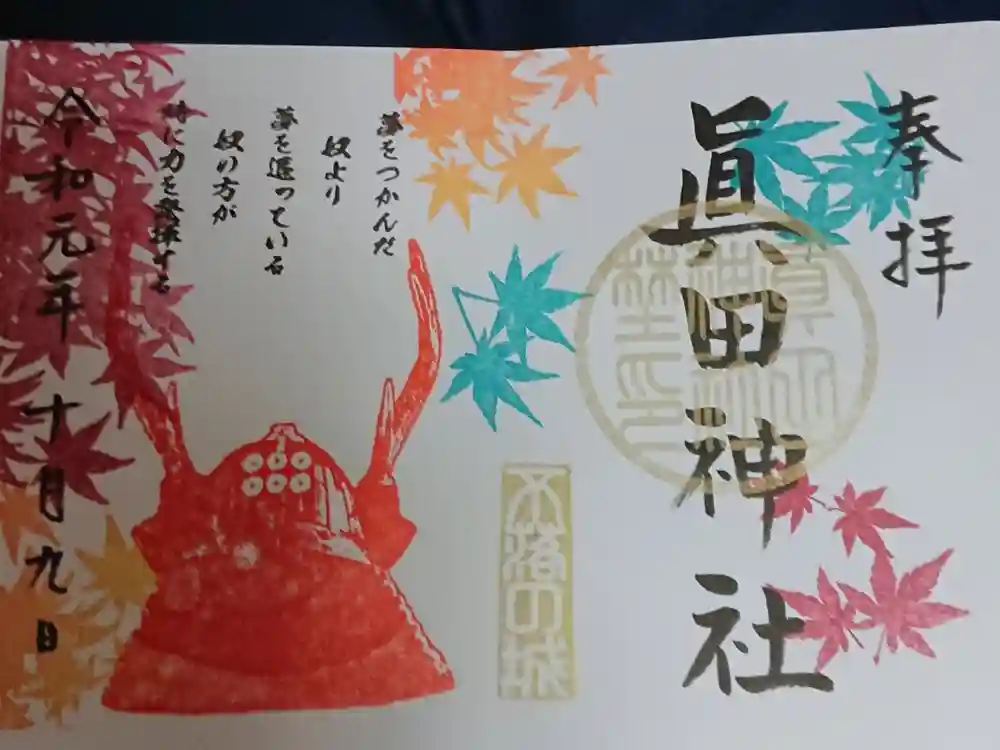 奉拝
眞田神社
眞田神社之印
不落の城
夢をつかんだ
奴より
夢を追っている
奴の方が
時に力を発揮する
令和元年十月九日